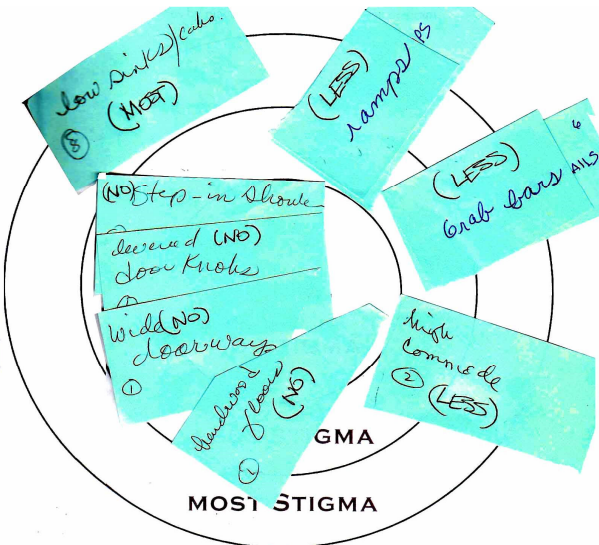 low sinks/cabs.
(MOST)
8
(LESS)
ramps
PS
(LESS)
Grab bars
6
AILS
(NO) Step-in Showe
levered (NO)
door Knobs
Wide (NO)
doorways
1
hardwood
floors
(NO)
1
high
Commode
2
(LESS)
GMA
MOST STIGMA